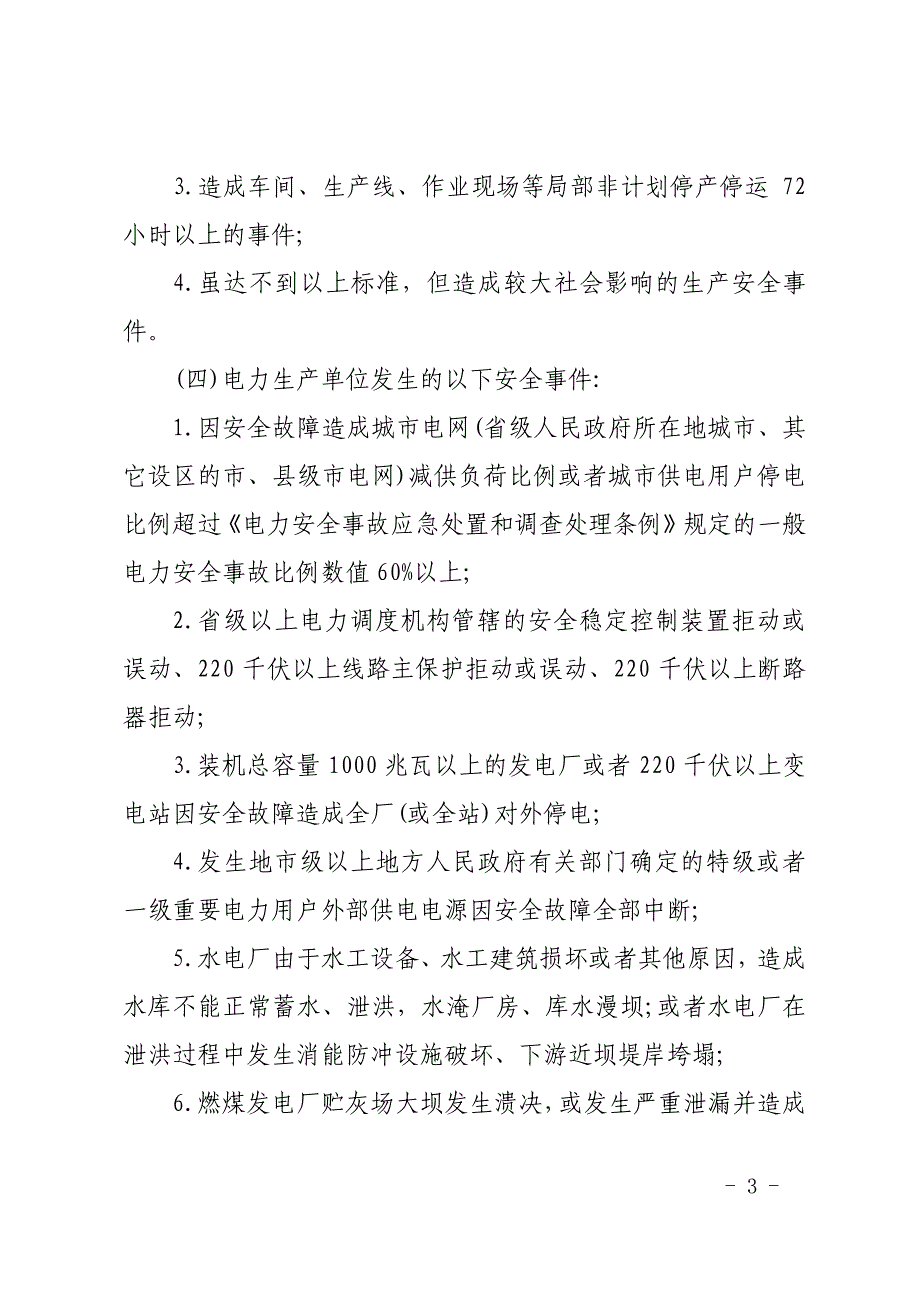 3.造成车间、生产线、作业现场等局部非计划停产停运 72
小时以上的事件;
4.虽达不到以上标准，但造成较大社会影响的生产安全事
件。
(四)电力生产单位发生的以下安全事件:
1.因安全故障造成城市电网(省级人民政府所在地城市、其
它设区的市、县级市电网)减供负荷比例或者城市供电用户停电
比例超过《电力安全事故应急处置和调查处理条例》规定的一般
电力安全事故比例数值 60%以上;
2.省级以上电力调度机构管辖的安全稳定控制装置拒动或
误动、220 千伏以上线路主保护拒动或误动、220 千伏以上断路
器拒动;
3.装机总容量 1000 兆瓦以上的发电厂或者 220 千伏以上变
电站因安全故障造成全厂(或全站)对外停电;
4.发生地市级以上地方人民政府有关部门确定的特级或者
一级重要电力用户外部供电电源因安全故障全部中断;
5.水电厂由于水工设备、水工建筑损坏或者其他原因，造成
水库不能正常蓄水、泄洪，水淹厂房、库水漫坝;或者水电厂在
泄洪过程中发生消能防冲设施破坏、下游近坝堤岸垮塌;
6.燃煤发电厂贮灰场大坝发生溃决，或发生严重泄漏并造成
- 3 -